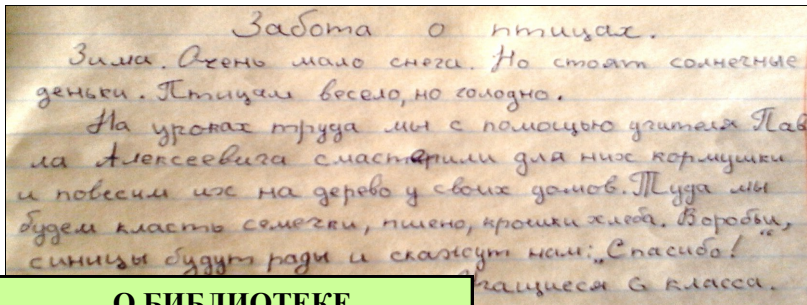 Забота о птицах.
Зима. Очень мало снега. Но стоят солнечные
деньки. Птицам весело, но голодно.
На уроках труда мы с помощью учителя Пав
ла Алексеевича смастерили для них кормушки
и повесим их на дерево у своих домов. Туда мы
будем класть семечки, пшено, крошки хлеба. Воробьи,
синицы будут рады и скажут нам: „Спасибо!“
Учащиеся 6 класса.
О БИБЛИОТЕКЕ